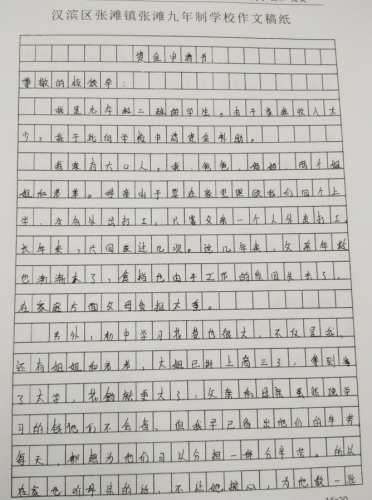 汉滨区张滩镇张滩九年制学校作文稿纸
资金申请书
尊敬的校领导：
我是九年级二班的学生。由于家庭收入太
少，我于此向学校申请资金补助。
我家有六口人，我、爸爸、妈妈、两个姐
姐和弟弟。母亲由于要在家里照顾我们四个上
学，没有外出打工，只靠父亲一个人外出打工
长年来，只回家过几次。这几年来，父亲年龄
也渐渐大了，爸爸也由于工作的原因失去了
在家庭方面父母负担太重。
另外，初中学习花费也很大，不仅是我，
还有姐姐和弟弟，大姐已经上高三了，等到考
了大学，花销就更大了，父亲和母亲虽然说学
习的钱他们不会省，但我早已看出他们的辛劳
每天，都想为他们可以分担一些分辛苦。所以
在家也听母亲的话，不让他操心，为他做一些